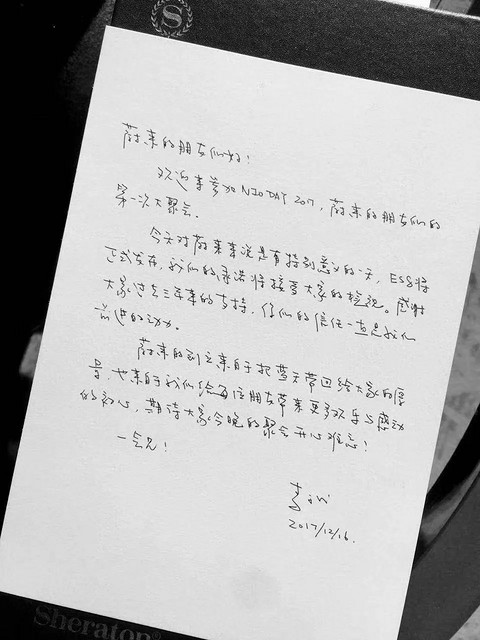 S
蔚来的朋友们好！
欢迎来参加NIO DAY 2017，蔚来的朋友们的
第一次大聚会。
今天对蔚来来说是有特别意义的一天，ES8将
正式发布，我们的承诺将接受大家的检视。感谢
大家过去三年来的支持，你们的信任一直是我们
前进的动力。
蔚来的创立来自于把蓝天带回给大家的愿
景，也来自于我们给每位朋友带来更多欢乐与感动
的初心，期待大家今晚的聚会开心难忘！
一会见！
李
2017/12/16.
Sheraton